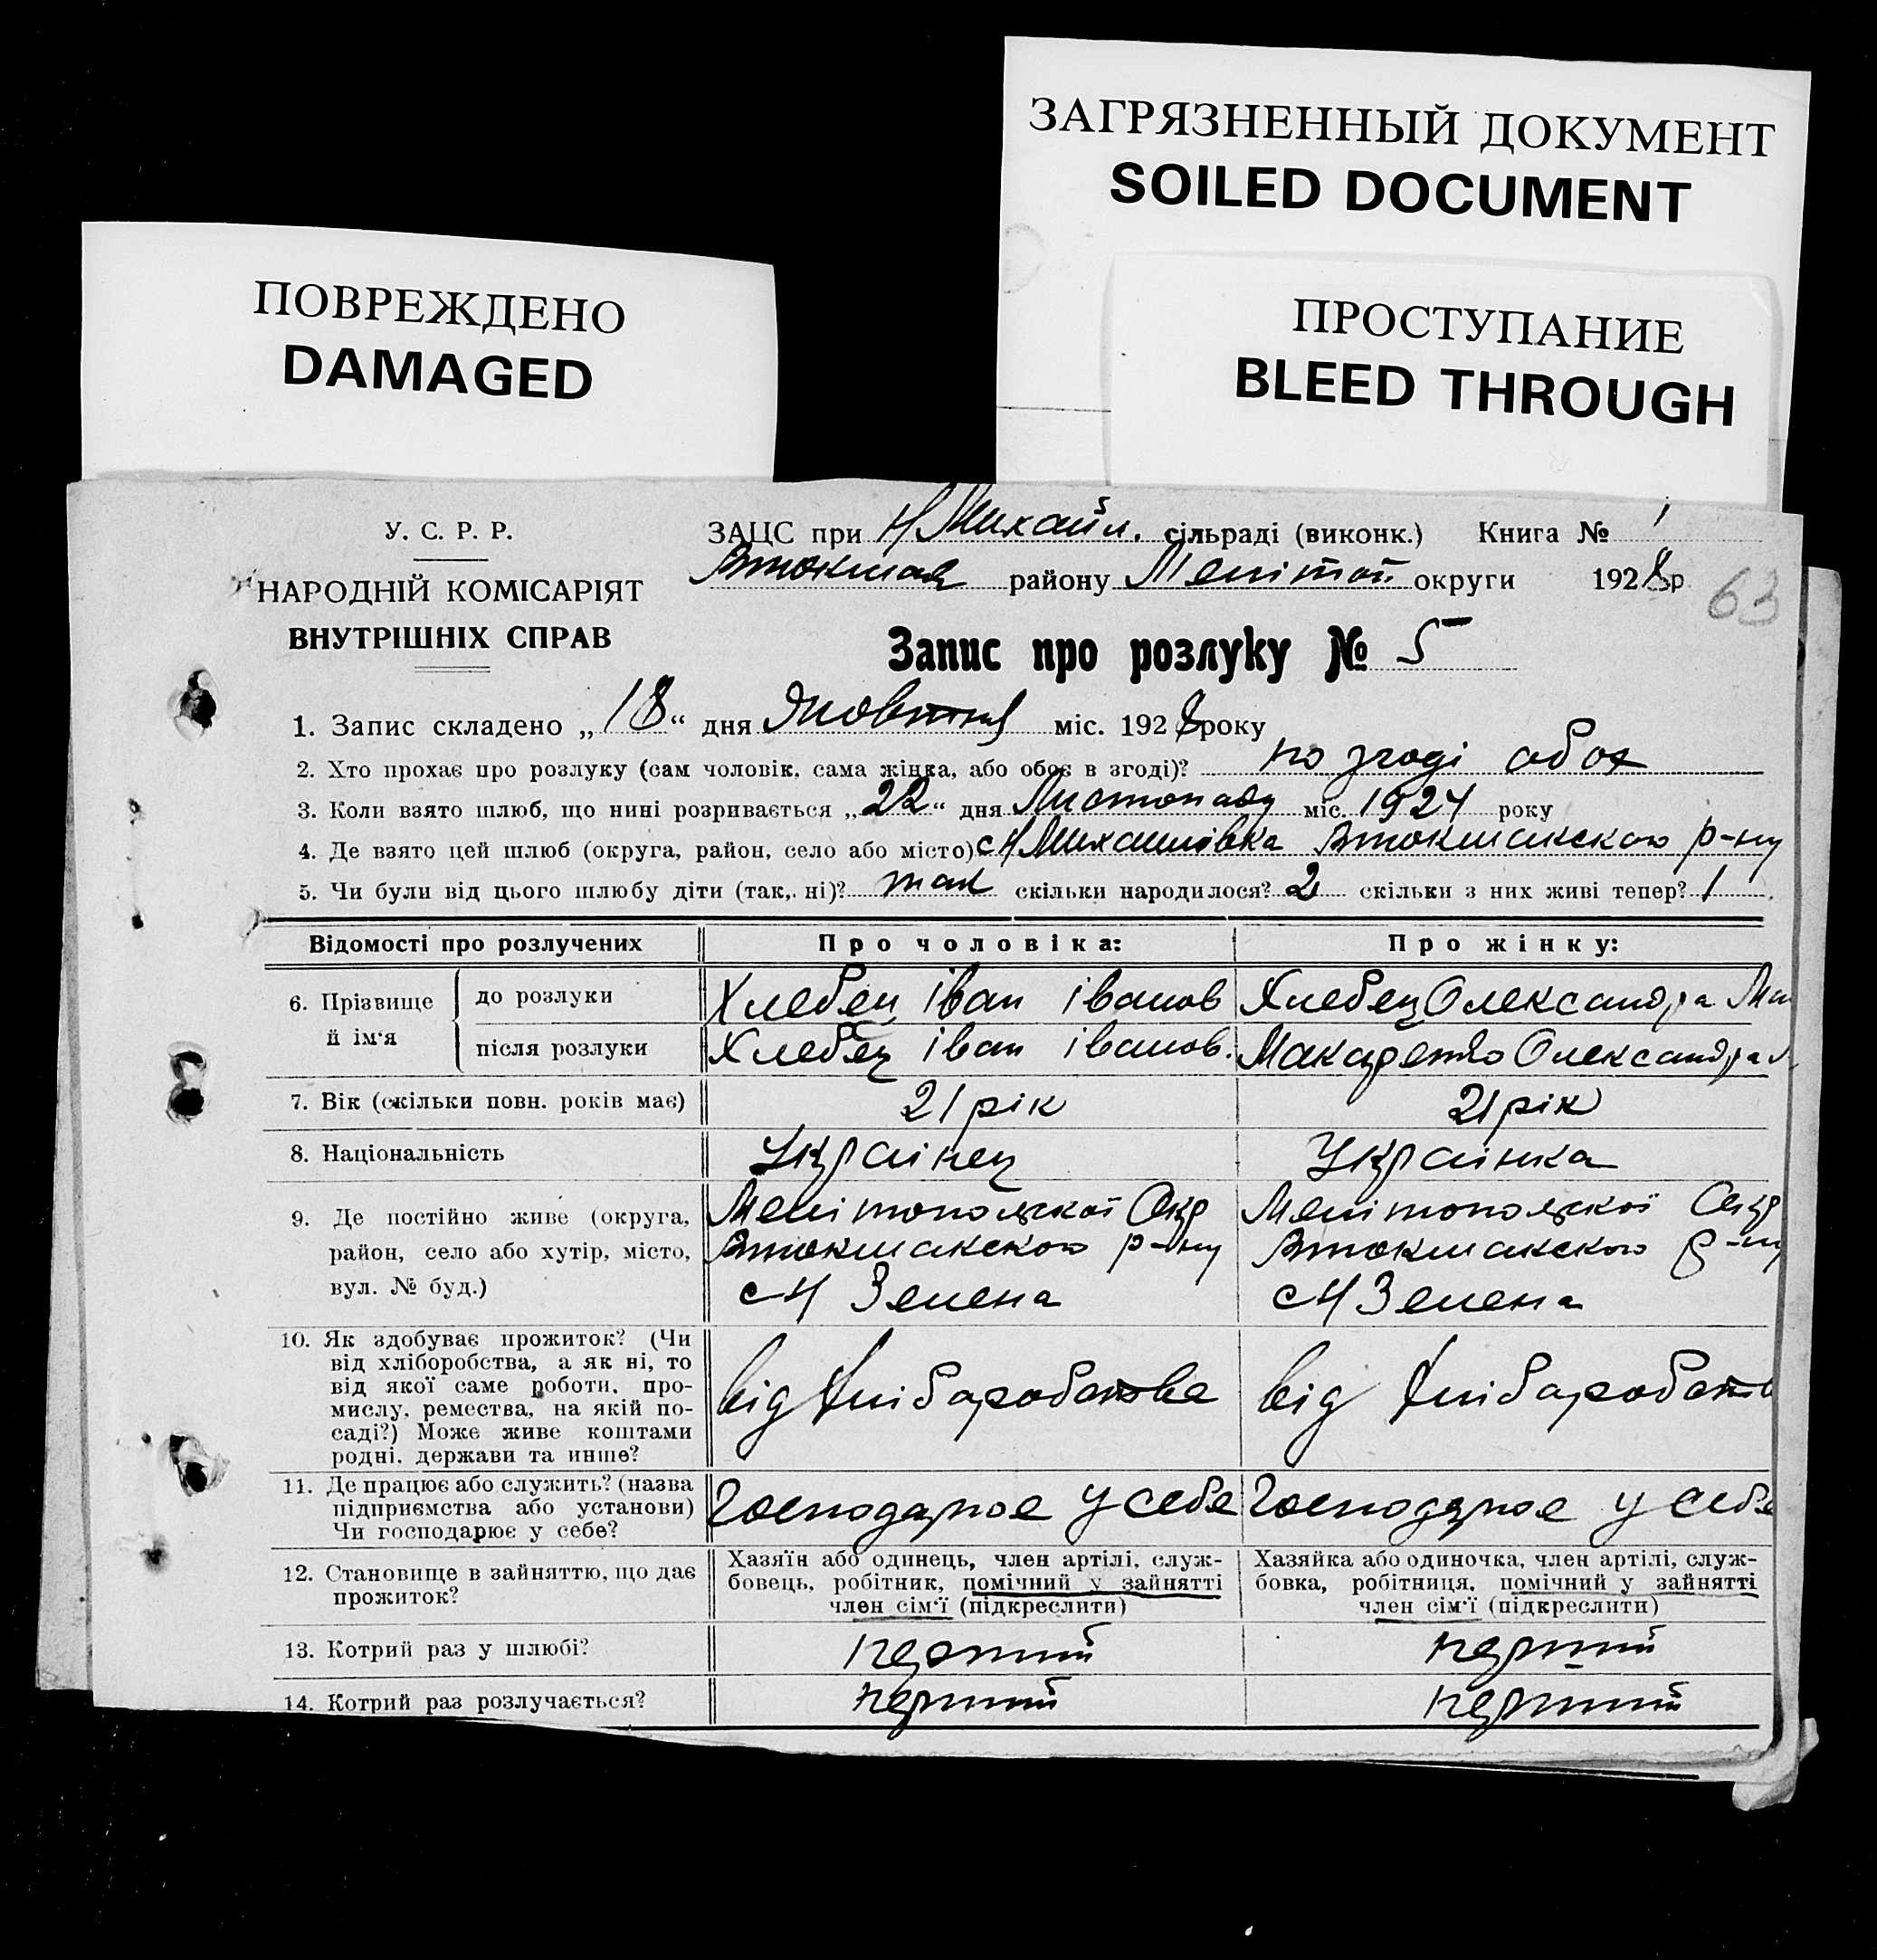 ЗАГРЯЗНЕННЫЙ ДОКУМЕНТ
SOILED DOCUMENT
ПОВРЕЖДЕНО
DAMAGED
ПРОСТУПАНИЕ
BLEED THROUGH
У. С. Р. Р.
НАРОДНІЙ КОМІСАРІЯТ
ВНУТРІШНІХ СПРАВ
ЗАЦС при Н Михайл. сільраді (виконк.) Книга № 1
Втокмак району Меліт оп округи 1928 р
63
Запис про розлуку № 5
1. Запис складено „18“ дня жовтня міс. 1928 року
2. Хто прохає про розлуку (сам чоловік, сама жінка, або обоє в згоді)? по згоді обох
3. Коли взято шлюб, що нині розривається „22“ дня Листопаду міс. 1924 року
4. Де взято цей шлюб (округа, район, село або місто) с Н Михайлівка Втокмакского р-ну
5. Чи були від цього шлюбу діти (так, ні)? так скільки народилося? 2 скільки з них живі тепер? 1
Відомості про розлучених Про чоловіка: Про жінку:
6. Прізвище й ім'я
до розлуки Хлебец іван іванов Хлебец Олександра
після розлуки Хлебец іван іванов. Макаренко Олександра
7. Вік (скільки повн. років має) 21 рік 21 рік
8. Національність Українец Українка
9. Де постійно живе (округа, Мелітопольскої Окр Мелітопольскої Окр
район, село або хутір, місто, Втокмакского р-ну Втокмакского р-ну
вул. № буд.) с Н Зелена с Н Зелена
10. Як здобуває прожиток? (Чи
від хліборобства, а як ні, то
від якої саме роботи, про-
мислу, ремества, на якій по-
саді?) Може живе коштами
родні, держави та инше?
від хлібаробства від хлібаробств
11. Де працює або служить? (назва
підприємства або установи)
Чи господарює у себе?
Господарює у себе Господарює у себе
12. Становище в зайняттю, що дає
прожиток?
Хазяїн або одинець, член артілі, служ-
бовець, робітник, помічний у зайнятті
член сім'ї (підкреслити)
Хазяйка або одиночка, член артілі, служ-
бовка, робітниця, помічний у зайнятті
член сім'ї (підкреслити)
13. Котрий раз у шлюбі? перший перший
14. Котрий раз розлучається? перший перший